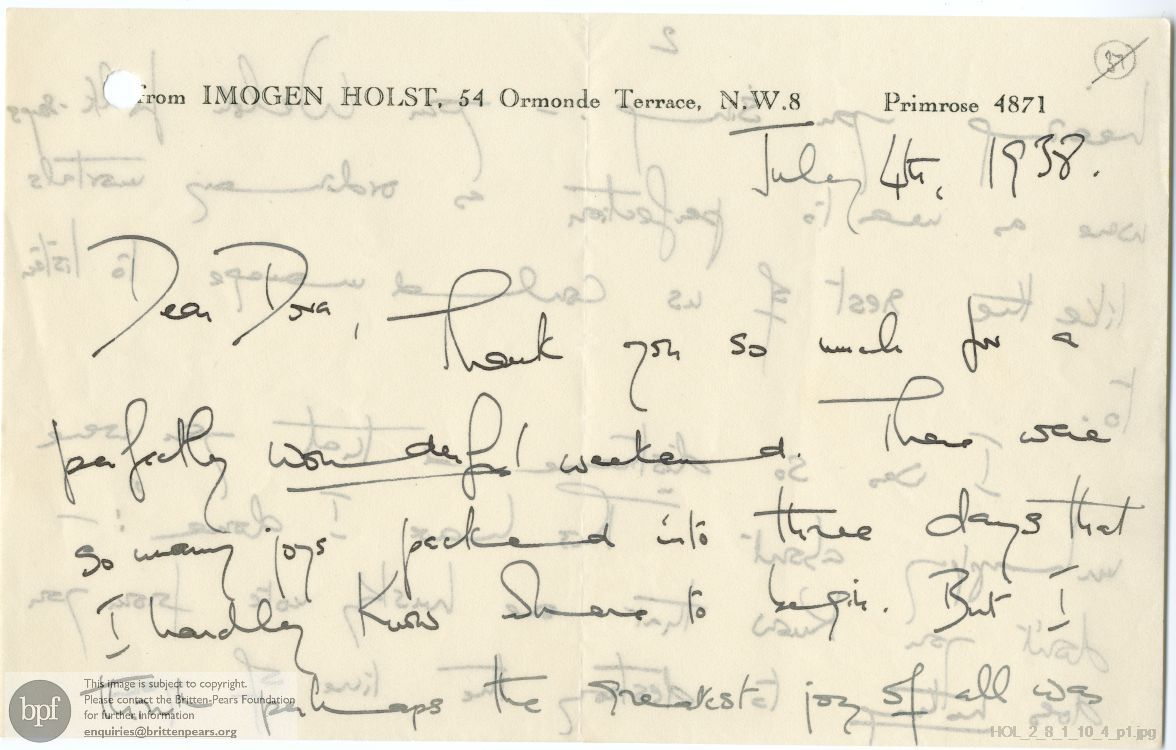 37
from IMOGEN HOLST, 54 Ormonde Terrace, N.W.8 Primrose 4871
July 4th, 1938.
Dear Dora, Thank you so much for a
perfectly wonderful weekend. There were
so many joys packed into three days that
I hardly know where to begin. But I
think perhaps the greatest joy of all was
This image is subject to copyright.
Please contact the Britten-Pears Foundation
for further information
enquiries@brittenpears.org
bpf
HOL_2_8_1_10_4_p1.jpg